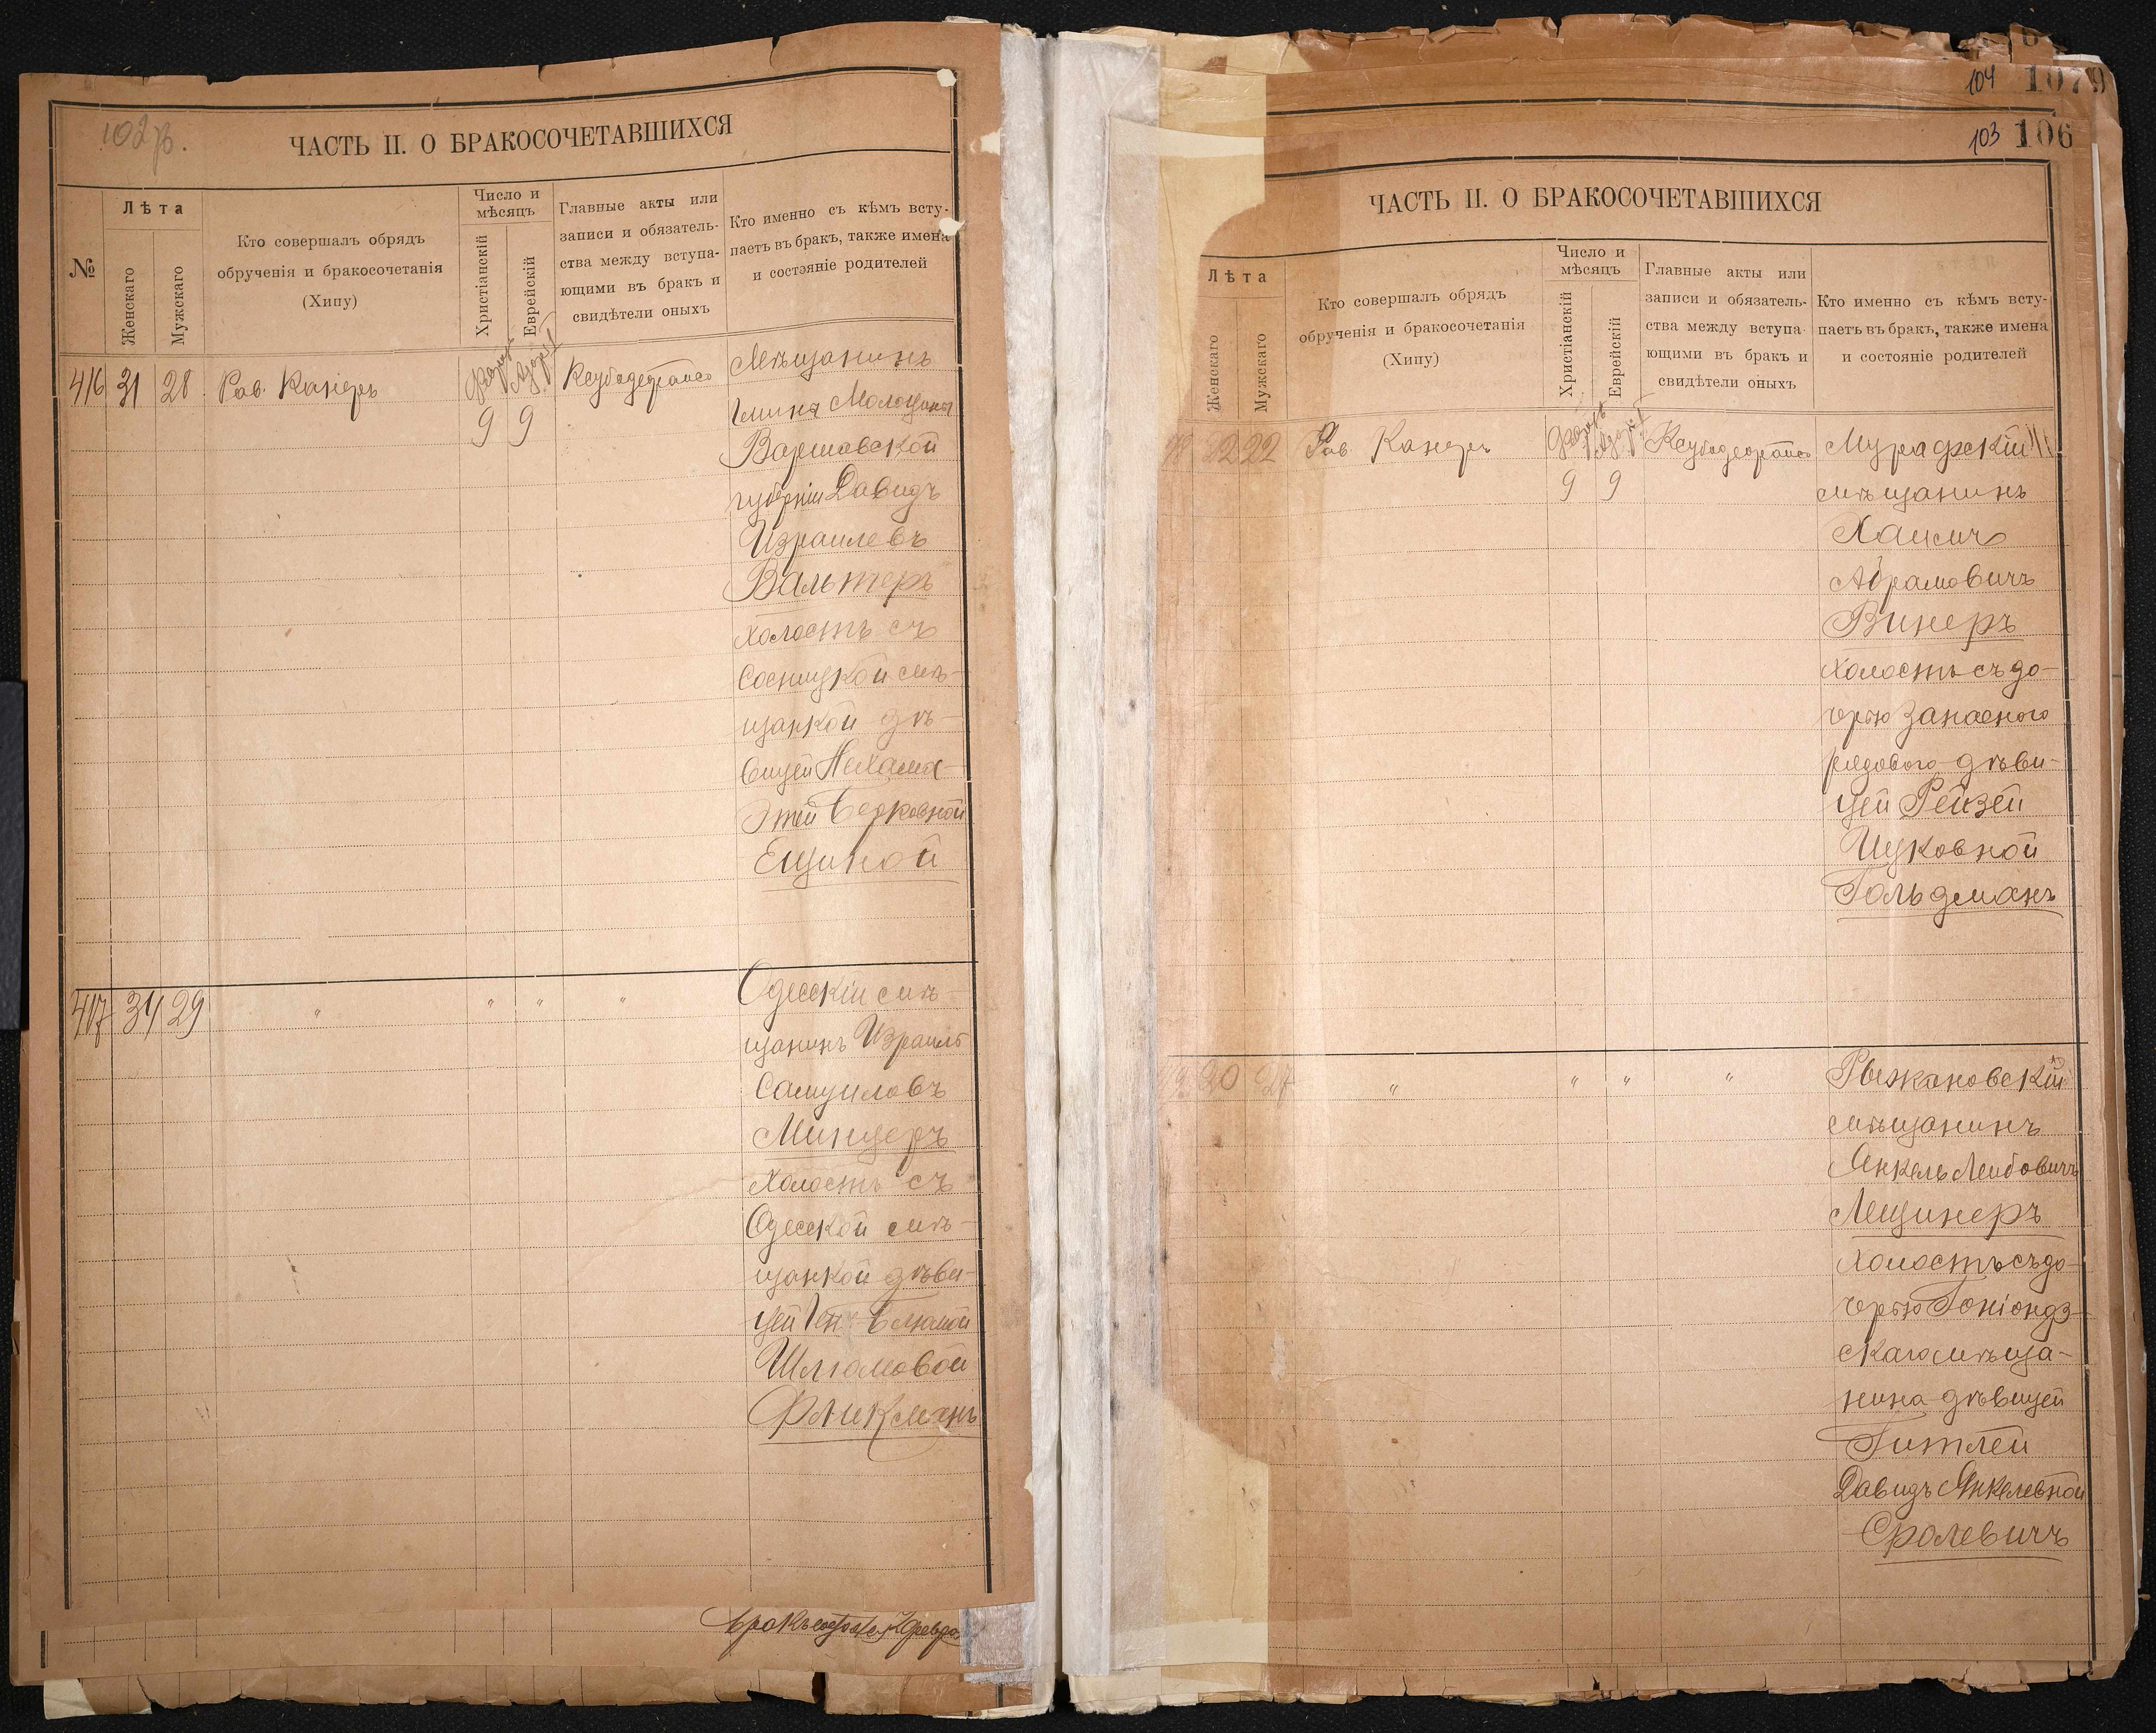 102 об.
ЧАСТЬ II. О БРАКОСОЧЕТАВШИХСЯ
№
Лѣта
Женскаго
Мужскаго
Кто совершалъ обрядъ
обрученія и бракосочетанія
(Хипу)
Число и
мѣсяцъ
Христіанскій
Еврейскій
Главные акты или
записи и обязатель-
ства между вступа-
ющими въ бракъ и
свидѣтели оныхъ
Кто именно съ кѣмъ всту-
паетъ въ бракъ, также имена
и состояніе родителей
416 31 28 Рав. Канеръ
9 9
Мѣщанинъ
гмины
Варшавской
губерніи Давидъ
Израилевъ
Вальтеръ
холостъ съ
Сосницкой мѣ-
щанкой дѣ-
вицей Нехама
Этей Берковной
Ещиной
417 34 29 " " " "
Одесскій мѣ-
щанинъ Израиль
Самуиловъ
Минцеръ
Холостъ съ
Одесской мѣ-
щанкой дѣви-
цей Блюмой
Шлюмовой
Фликманъ
104 1079
103 106
ЧАСТЬ II. О БРАКОСОЧЕТАВШИХСЯ
Лѣта
Женскаго
Мужскаго
Кто совершалъ обрядъ
обрученія и бракосочетанія
(Хипу)
Число и
мѣсяцъ
Христіанскій
Еврейскій
Главные акты или
записи и обязатель-
ства между вступа-
ющими въ бракъ и
свидѣтели оныхъ
Кто именно съ кѣмъ всту-
паетъ въ бракъ, также имена
и состояніе родителей
22 22 Рав Канеръ
9 9
Мурафскій
мѣщанинъ
Хаимъ
Абрамовичъ
Винеръ
Холостъ съ до-
черью запаснаго
рядового дѣви-
цей Рейзей
Ицковной
Гольдманъ
20 27 " " " "
Рыжановскій
мѣщанинъ
Янкель Лейбовичъ
Лещинеръ
Холостъ съ до-
черью Гоніондз-
скаго мѣща-
нина дѣвицей
Гитлей
Давидъ Янкелевной
Сролевичъ